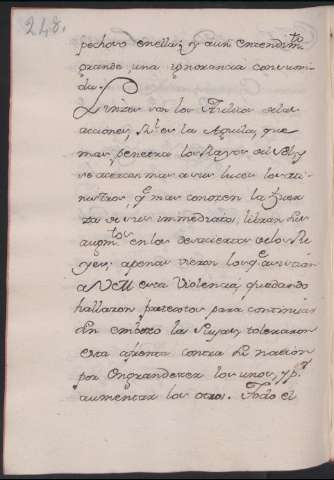 248.
pechoso en ella; y aun entendim.to
grande, una ignorancia consumi-
da.
Linzes son los Aulicos de las
acciones, Si es la Aguila, que
mas penetra los Rayos del Sol, y
se acercan mas a sus luces los mi-
nistros, q.e mas conozen la fuer-
za de sus inmediatos, libran sus
augm.tos en los desaciertos de los Re-
yes; apenas vieron los q.e asistian
a VM esta Violencia, quedando
hallaron pretextos para continuar
En efecto la Suya, toleraron
esta afrenta contra su nacion
por Engrandecer los unos, y p.r
aumentar los otros. Todo el